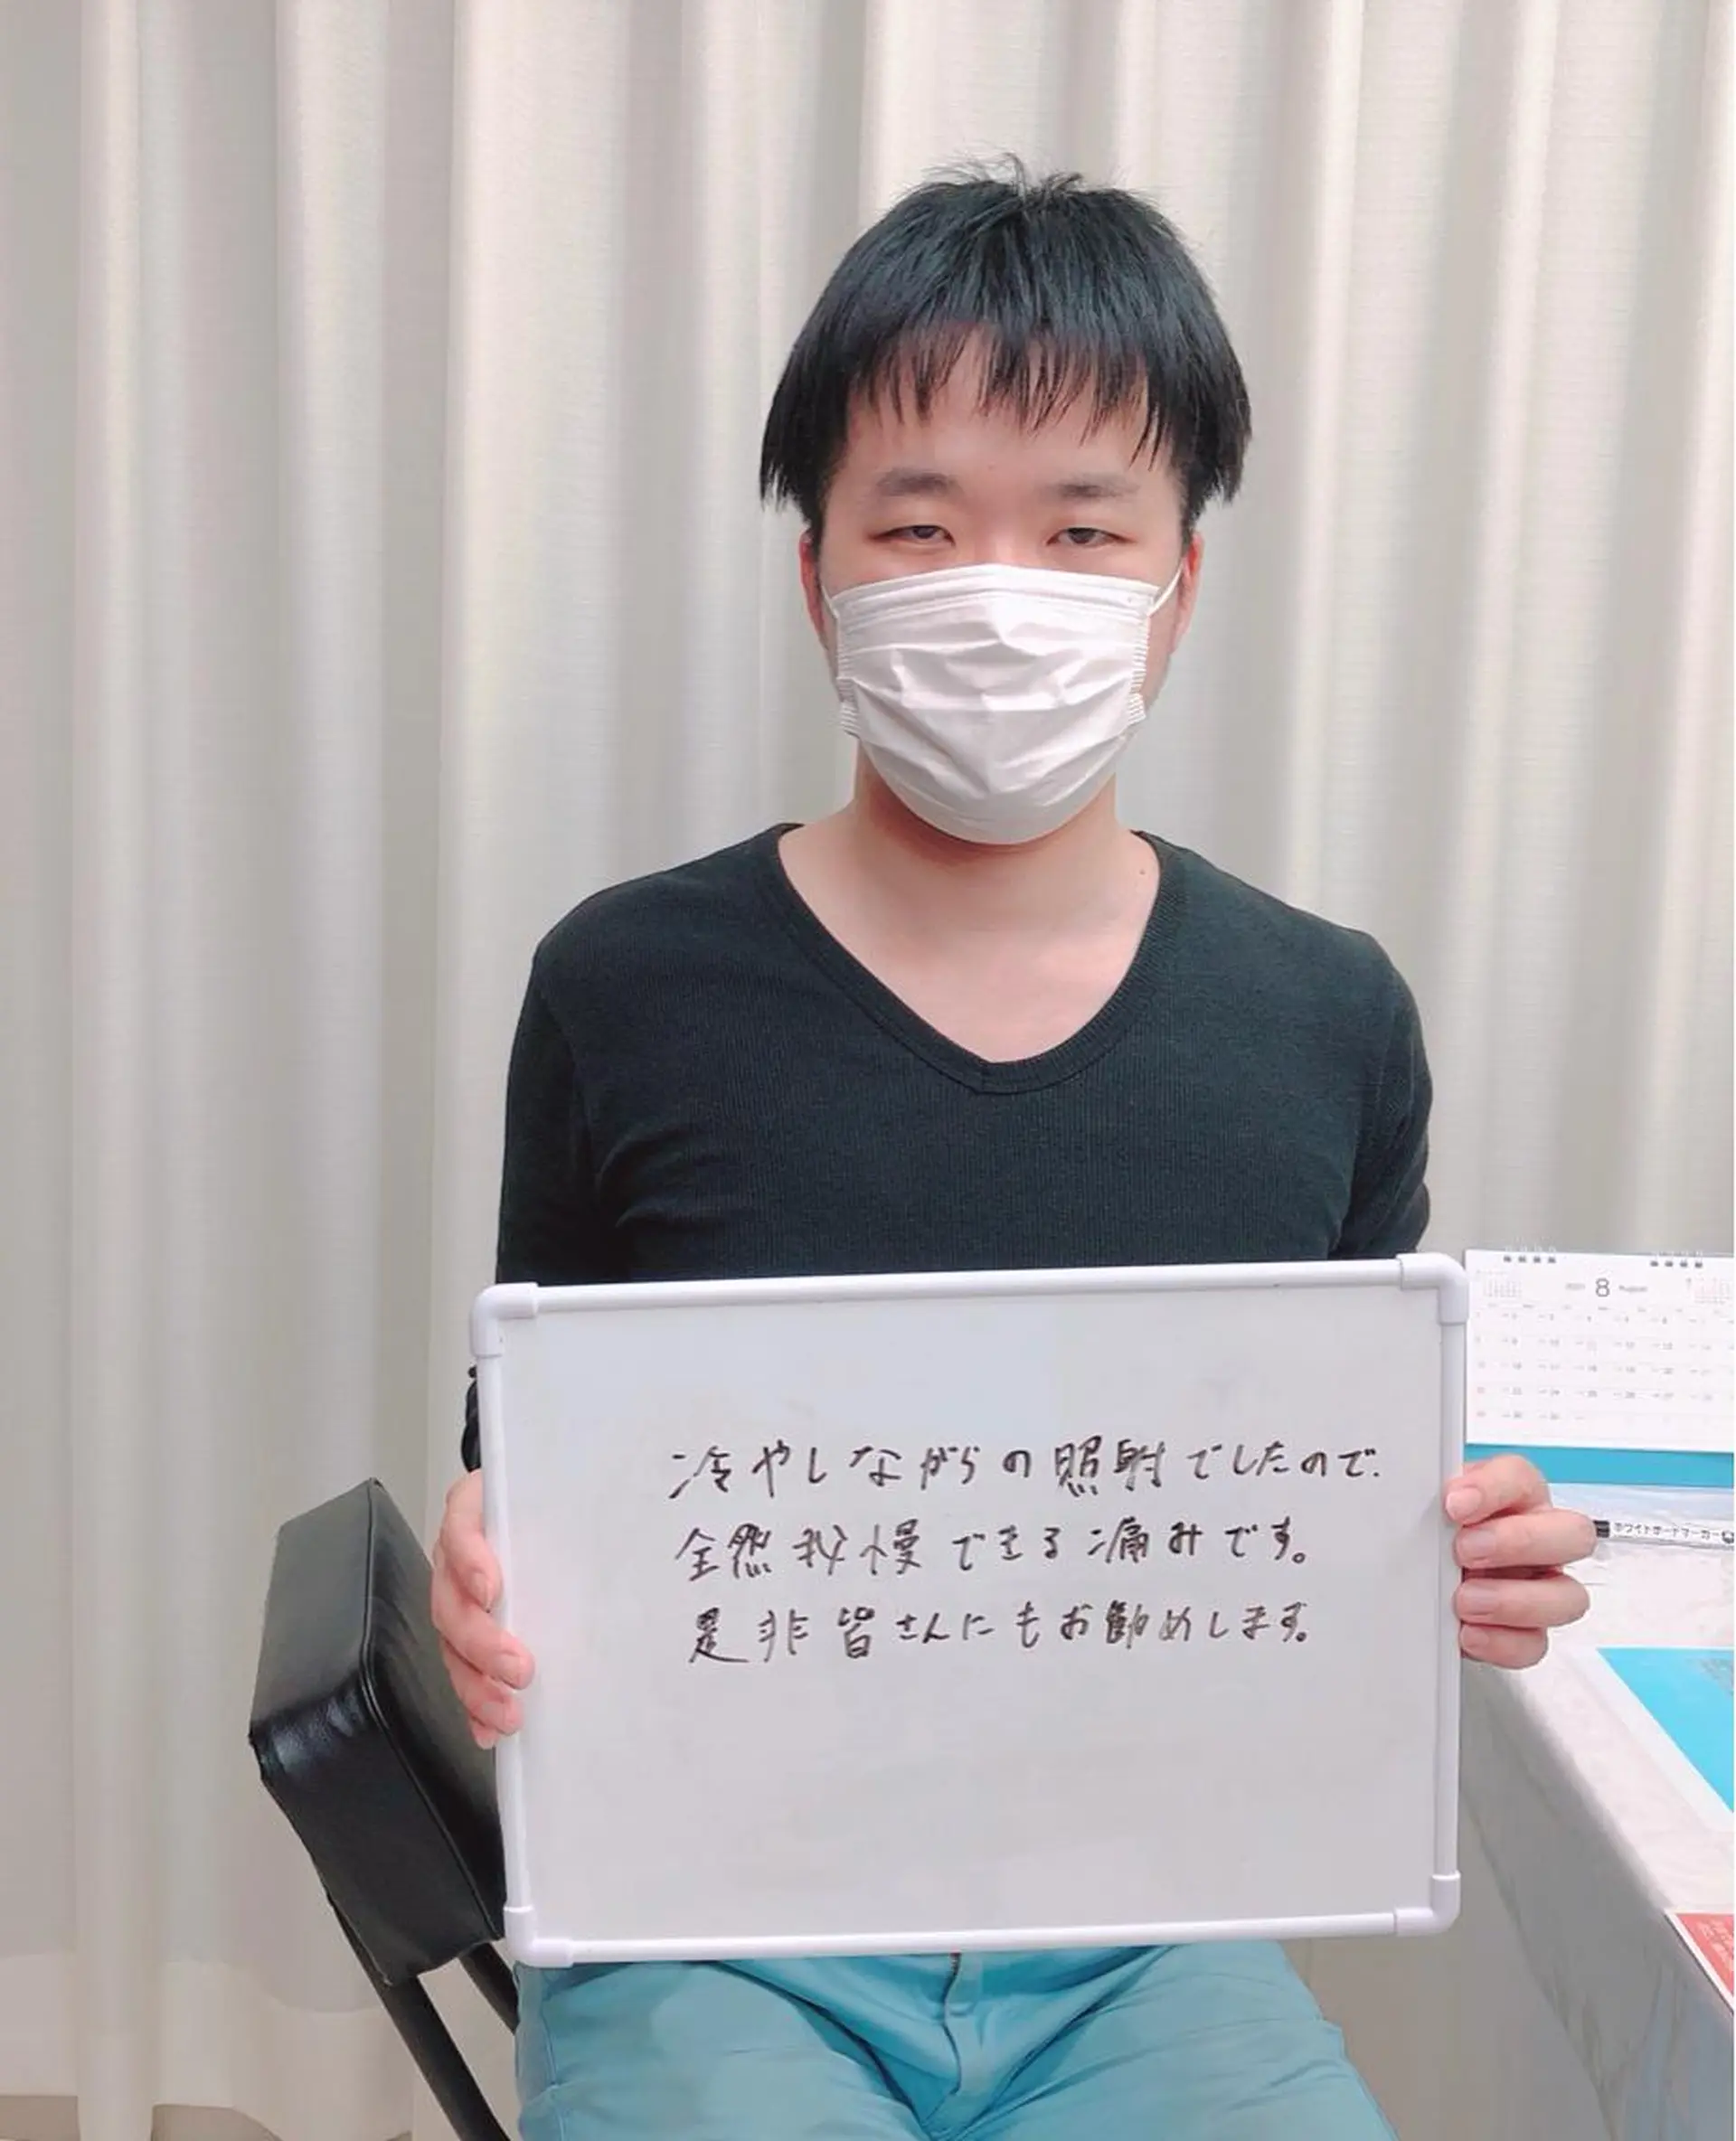 冷やしながらの照射でしたので、
全然我慢できる痛みです。
是非皆さんにもお勧めします。
8
August
ホワイトボードマーカー